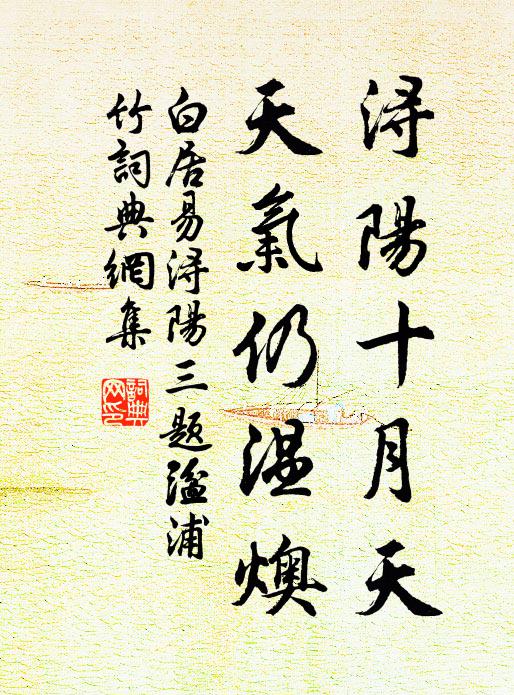 浔陽十月天
天氣仍温燠
白居易浔陽三题湓浦
竹詞典網集
詞典网印